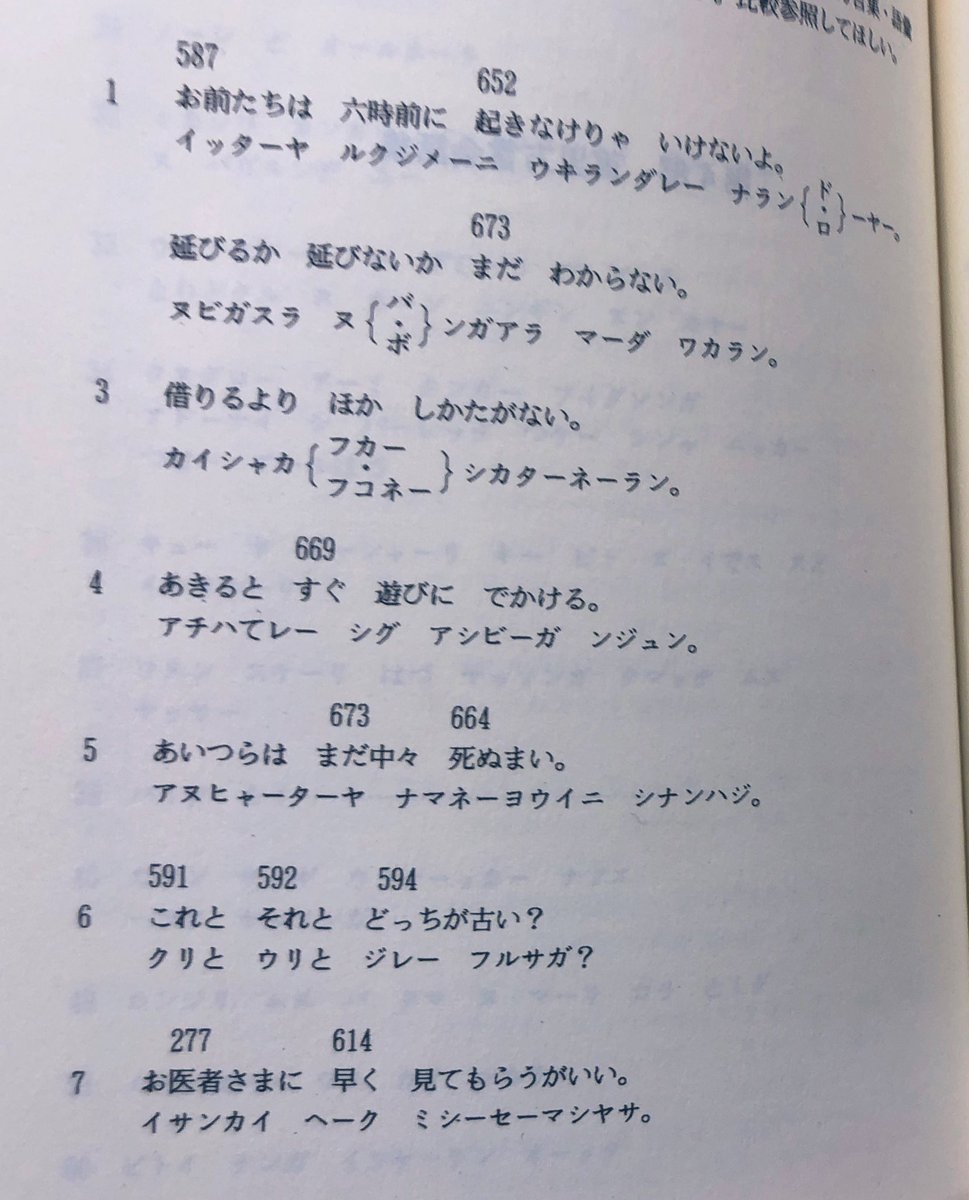 比較参照してほしい。
587 652
1 お前たちは 六時前に 起きなけりゃ いけないよ。
イッターヤ ルクジメーニ ウキランダレー ナラン{ド・ロ}ーヤー。
673
延びるか 延びないか まだ わからない。
ヌビガスラ ヌ{バ・ボ}ンガアラ マーダ ワカラン。
3 借りるより ほか しかたがない。
カイシャカ{フカー・フコネー}シカターネーラン。
669
4 あきると すぐ 遊びに でかける。
アチハてレー シグ アシビーガ ンジュン。
673 664
5 あいつらは まだ中々 死ぬまい。
アヌヒャーターヤ ナマネーヨウイニ シナンハジ。
591 592 594
6 これと それと どっちが古い?
クリと ウリと ジレー フルサガ?
277 614
7 お医者さまに 早く 見てもらうがいい。
イサンカイ ヘーク ミシーセーマシヤサ。